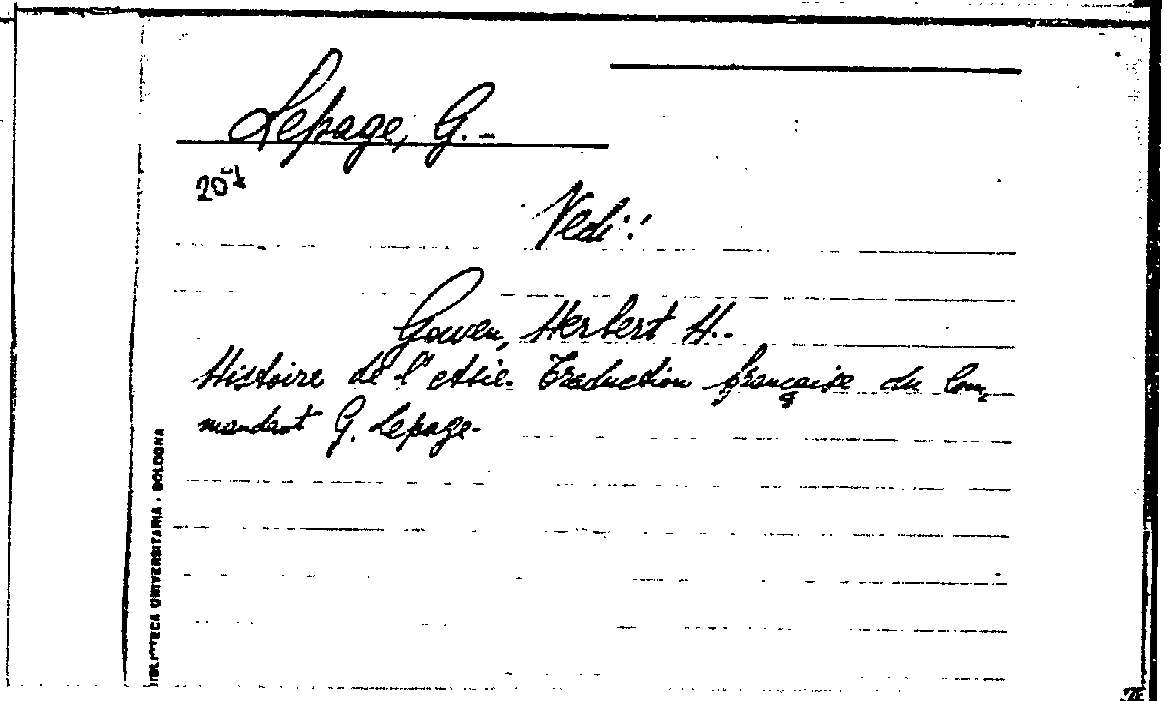 Lepage, G. -
Vedi:
Gowen, Herbert H. -
Histoire de l'Asie. Traduction française du Com-
mandant G. Lepage.
BIBLIOTECA UNIVERSITARIA - BOLOGNA